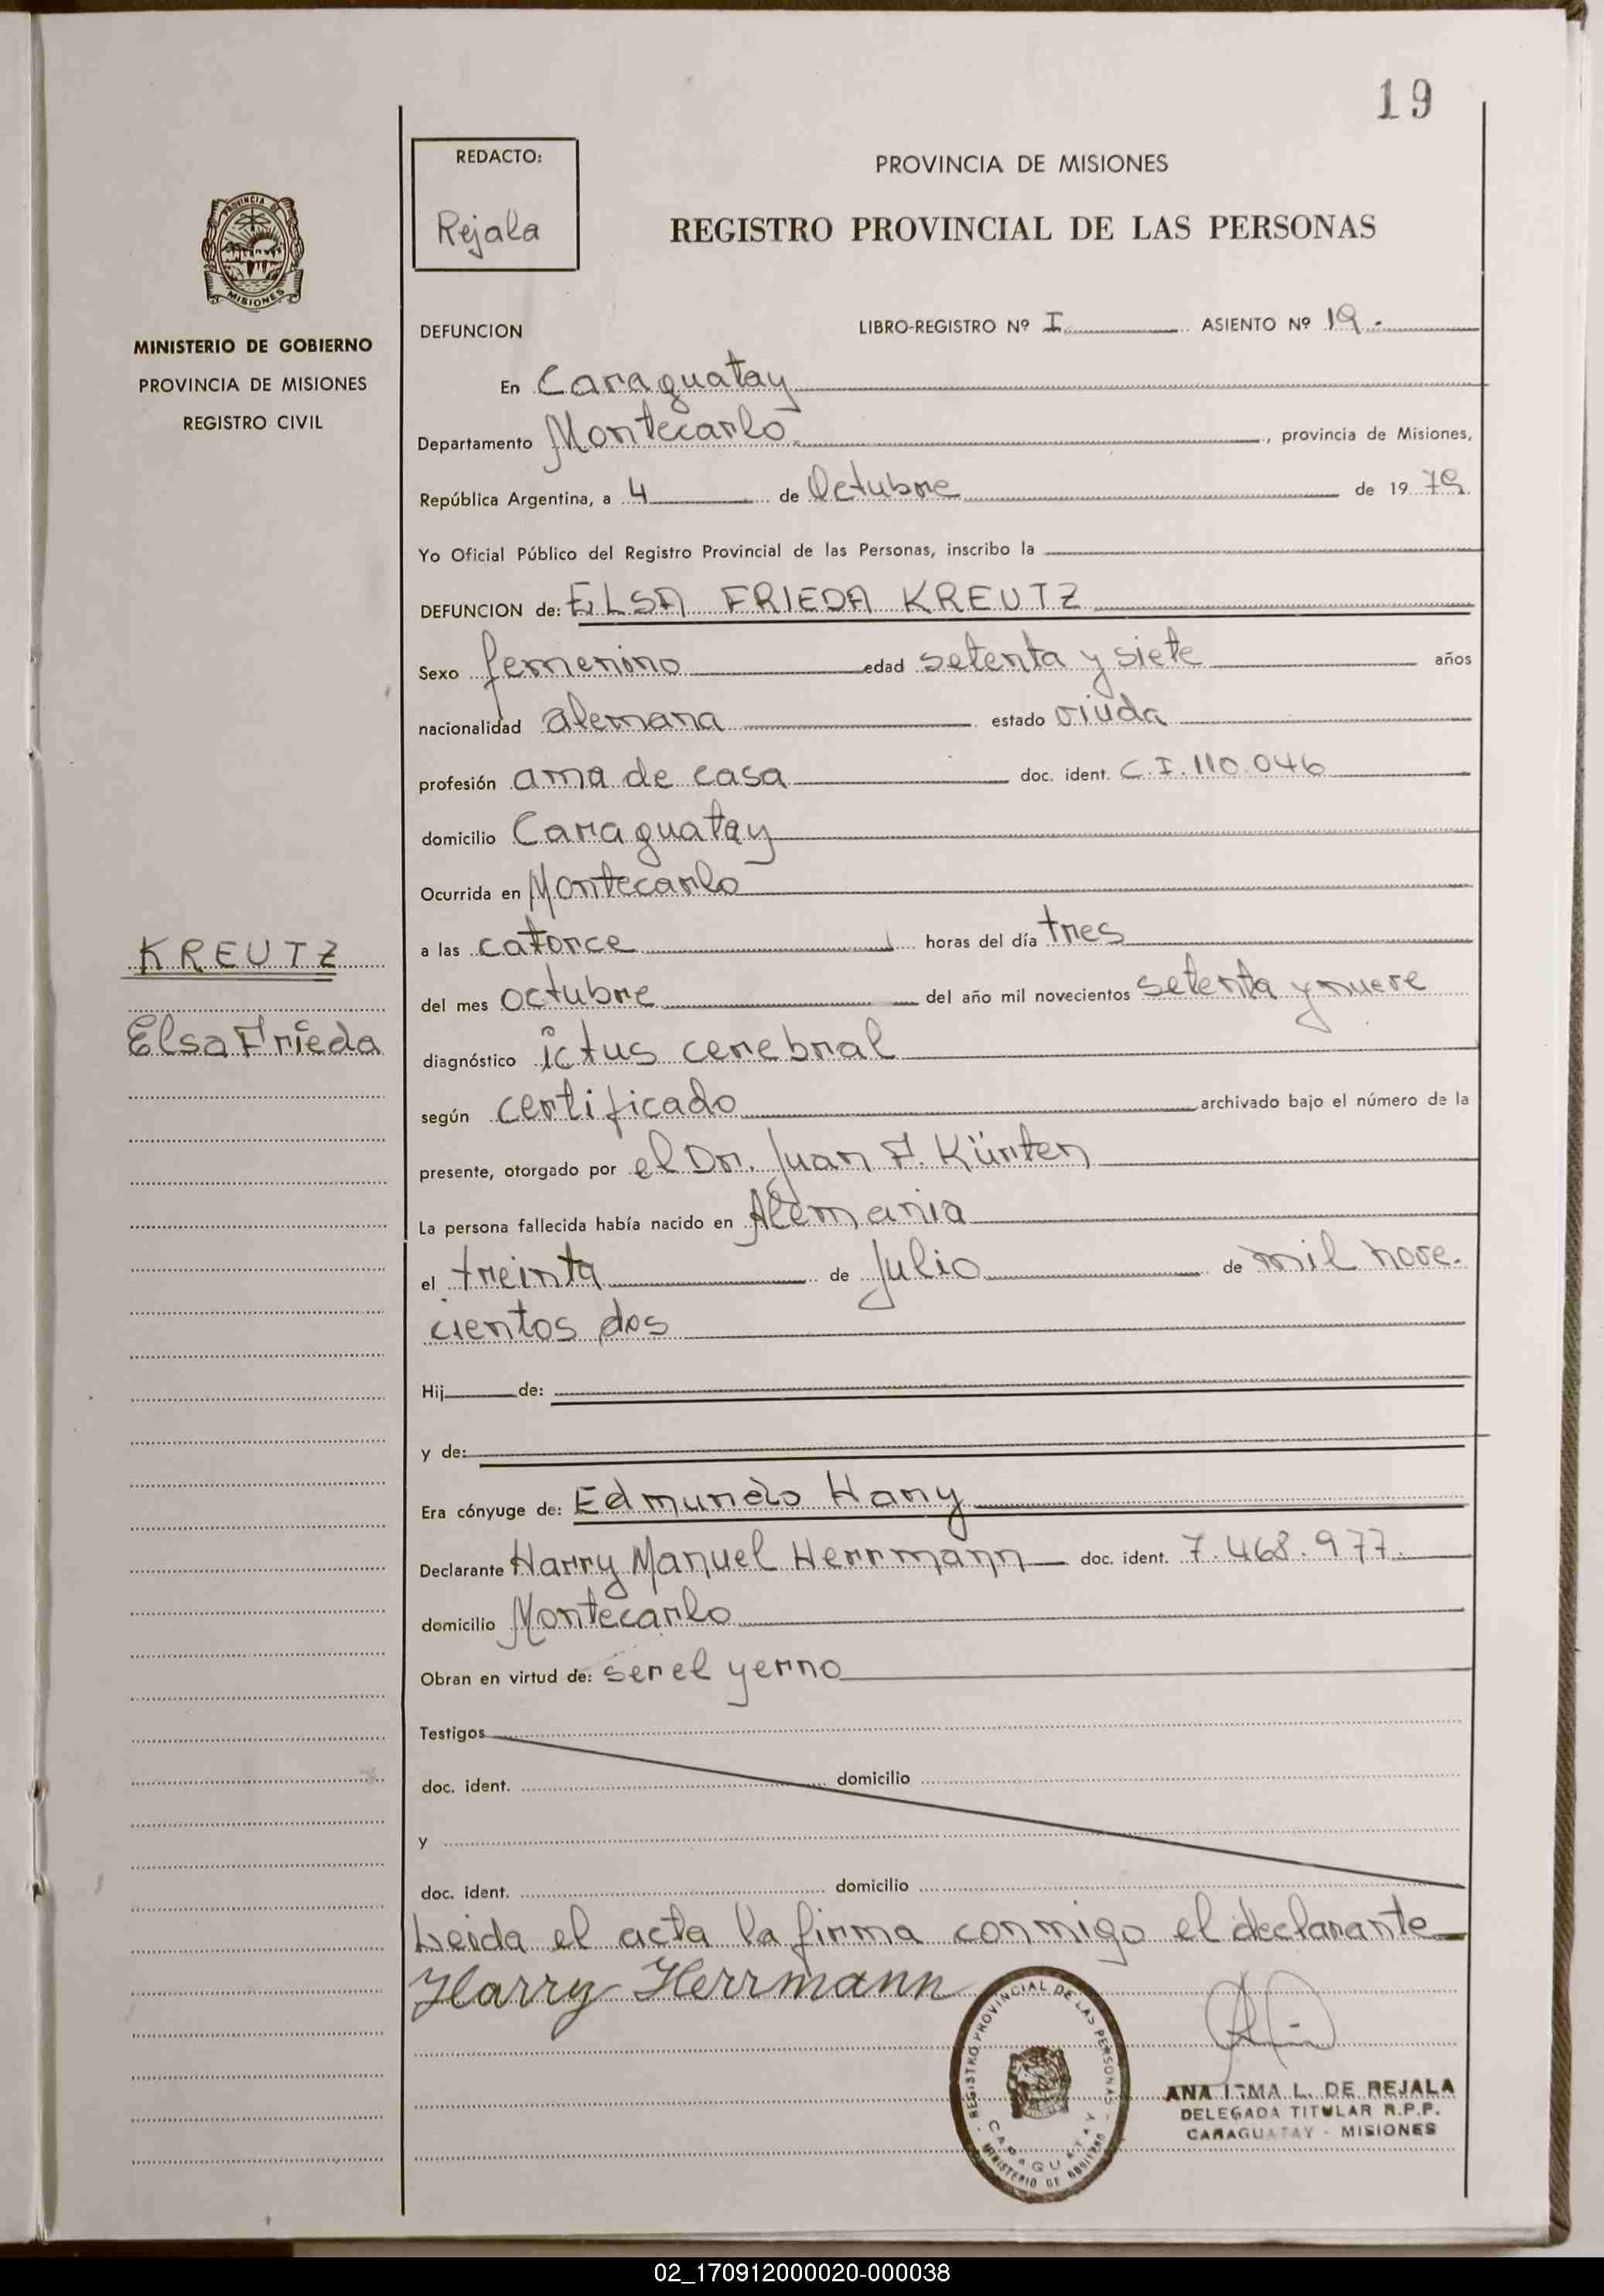 19
REDACTO:
Rejala
PROVINCIA DE MISIONES
REGISTRO PROVINCIAL DE LAS PERSONAS
PROVINCIA D
MISIONES
MINISTERIO DE GOBIERNO
PROVINCIA DE MISIONES
REGISTRO CIVIL
DEFUNCION LIBRO-REGISTRO Nº I ASIENTO Nº 19.-
En Caraguatay
Departamento Montecarlo, provincia de Misiones,
República Argentina, a 4 de Octubre de 1979.
Yo Oficial Público del Registro Provincial de las Personas, inscribo la
DEFUNCION de: ELSA FRIEDA KREUTZ
Sexo femenino edad setenta y siete años
nacionalidad alemana estado viuda
profesión ama de casa doc. ident. C.I. 110.046
domicilio Caraguatay
Ocurrida en Montecarlo
a las catorce horas del día tres
del mes octubre del año mil novecientos setenta y nueve
diagnóstico ictus cerebral
según certificado archivado bajo el número de la
presente, otorgado por el Dr. Juan F. Künten
La persona fallecida había nacido en Alemania
el treinta de Julio de mil nove.
cientos dos
Hij de:
y de:
Era cónyuge de: Edmundo Hany
Declarante Harry Manuel Herrmann doc. ident. 7.468.977.
domicilio Montecarlo
Obran en virtud de: ser el yerno
Testigos
doc. ident. domicilio
y
doc. ident. domicilio
Leida el acta la firma conmigo el declarante
Harry Herrmann
KREUTZ
Elsa Frieda
REGISTRO PROVINCIAL DE LAS PERSONAS
CARAGUATAY
MINISTERIO DE GOBIERNO
ANA IRMA L. DE REJALA
DELEGADA TITULAR R.P.P.
CARAGUATAY - MISIONES
02_170912000020-000038